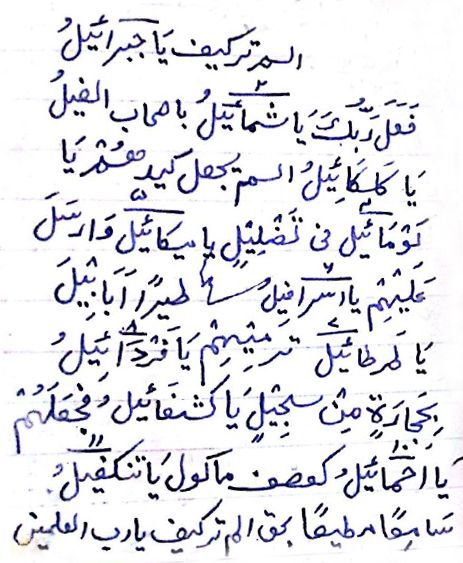 الم تر كيف یَا جبرائیلُ
فَعَلَ رَبُّكَ یَا شمائیلُ باصحاب الفیلُ
یَا كَلكَائِیلُ الم یجعل كیدهم یَا
لَوْمَائیل فی تَضْلِیْلٍ یا میكائیلُ وَارسَلَ
عَلَیْهِمْ یا اسرافیلُ طیرًا اَبَابِیْلَ
یَا طرطائیل تَرمِیْهِمْ یَا فَرْدَائیلُ
بِحِجَارَةٍ مِنْ سجیلٍ یَا كشفائیلُ فجَعَلَهُمْ
یَا اخمائیلُ كعصف ماكول یَا تنكفیلُ
سامِعًا مطیعًا بحق الم تر كیف یا رب العلمین